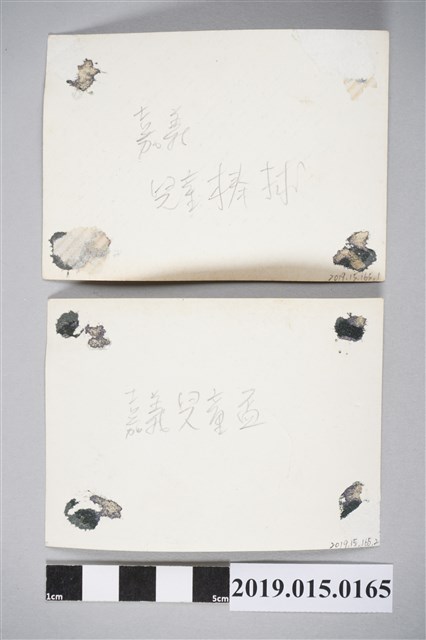 嘉義
兒童棒球
2019.15.165.1
嘉義兒童盃
2019.15.165.2
1cm
5cm
2019.015.0165